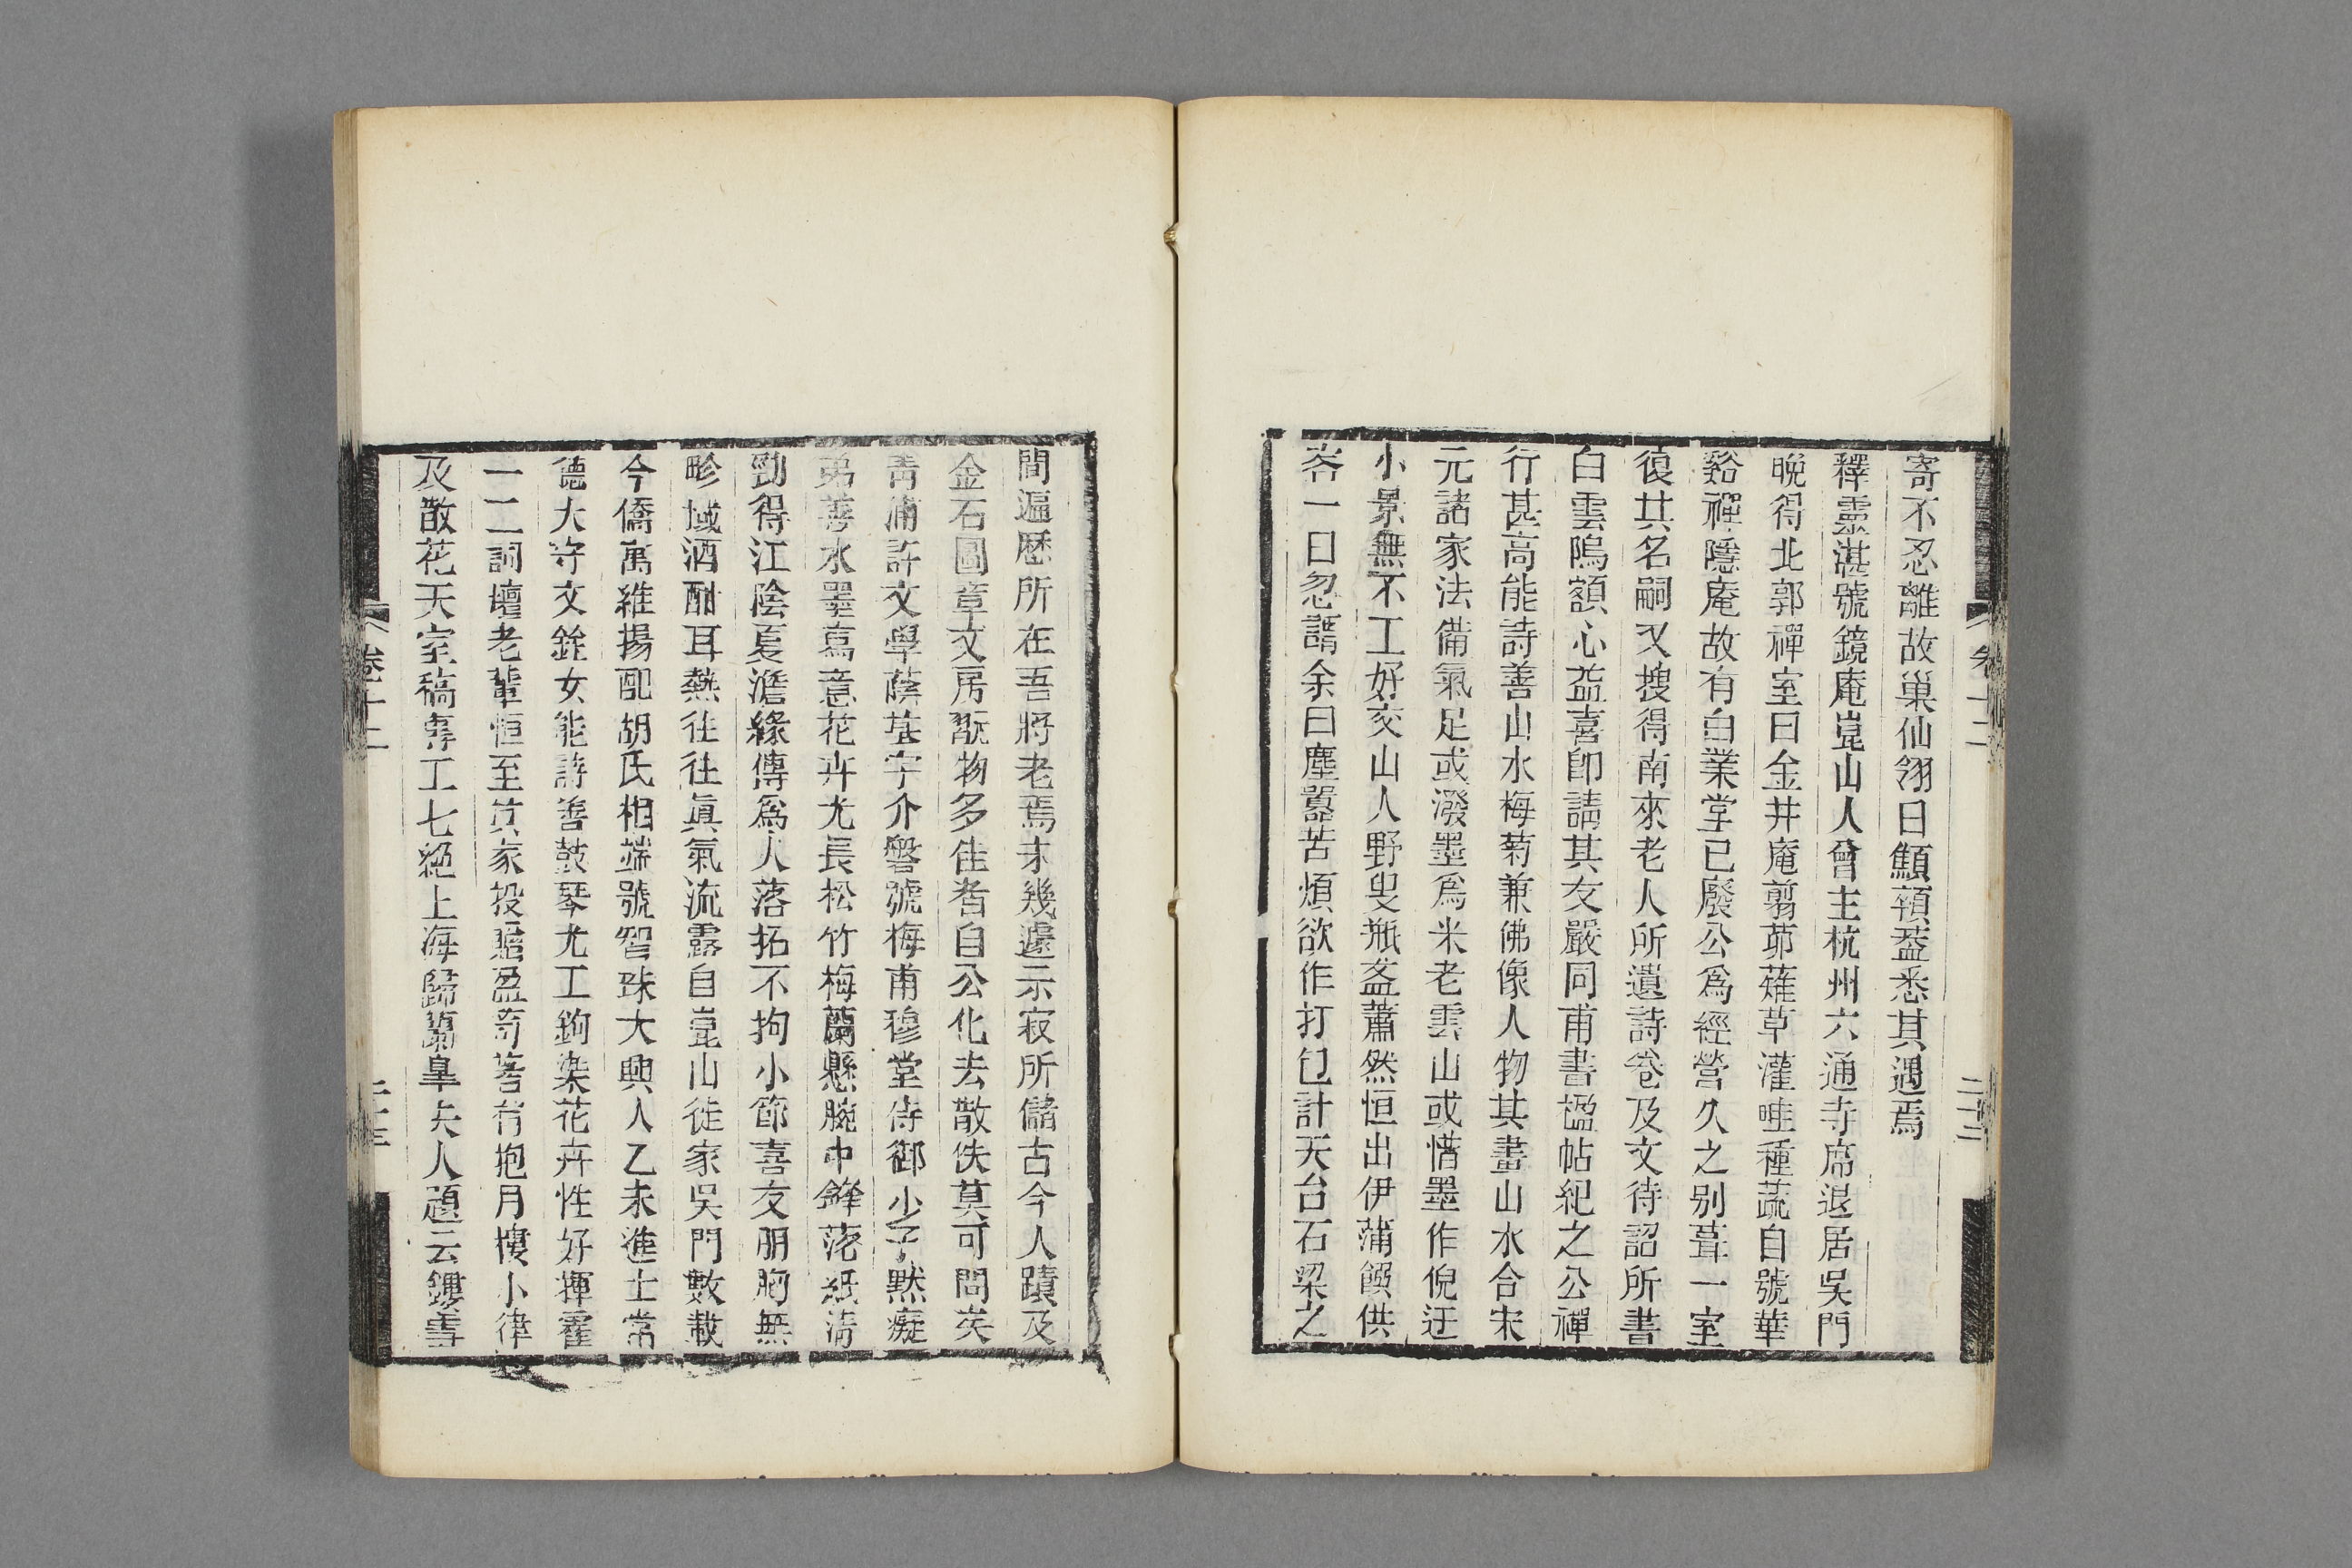 寄不忍離故巢仙翎曰顦顇葢悉其遇焉
釋靈湛號鏡庵崑山人曾主杭州六通寺席退居吳門
晚得北郭禪室曰金井庵翦茆薙草灌畦種蔬自號華
谿禪隱庵故有白業堂已廢公爲經營久之別葺一室
復其名嗣又搜得南來老人所遺詩卷及文待詔所書
白雲隖額心益喜卽請其友嚴同甫書楹帖紀之公禪
行甚高能詩善山水梅菊兼佛像人物其畫山水合宋
元諸家法備氣足或潑墨爲米老雲山或惜墨作倪迂
小景無不工好交山人野叟瓶盋蕭然恒出伊蒲饌供
客一日忽謂余曰塵囂苦煩欲作打包計天台石梁之
間遍歷所在吾將老焉未幾遽示寂所儲古今人蹟及
金石圖章文房翫物多佳者自公化去散佚莫可問矣
靑浦許文學蔭基字介磐號梅甫穆堂侍御少子默癡
弟善水墨寫意花卉尤長松竹梅蘭懸腕中鋒落紙淸
勁得江陰夏澹緣傳爲人落拓不拘小節喜友朋胸無
畛域酒酣耳熱往往眞氣流露自崑山徙家吳門數載
今僑寓維揚配胡氏相端號智珠大興人乙未進士常
德太守文銓女能詩善鼓琴尤工鉤染花卉性好揮霍
一二詞壇老輩恒至其家投贈盈奇箸有抱月樓小律
及散花天室稿專工七絕上海歸蘭皋夫人題云鏤雪
卷十二
二十二
卷十二
二十三